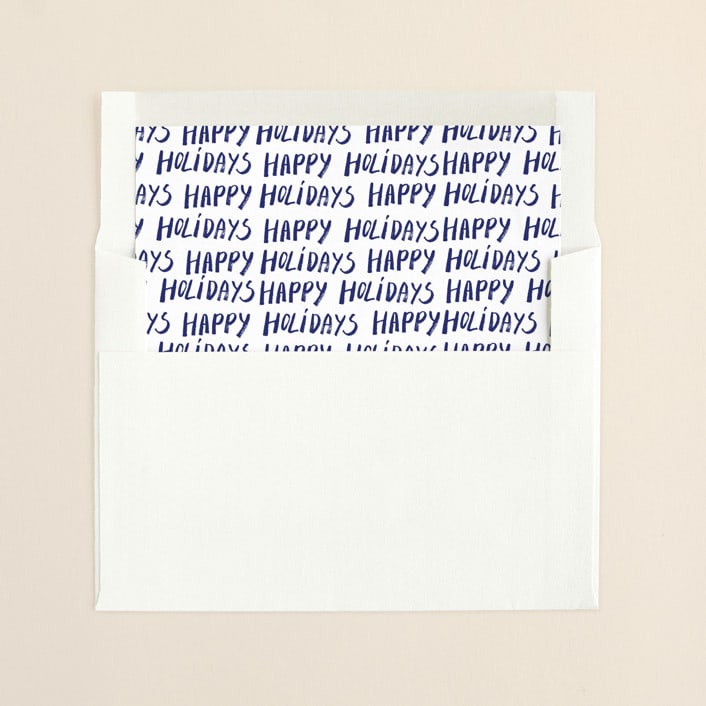 AYS HAPPY HOLIDAYS HAPPY HOLIDAYS H
Y HOLIDAYS HAPPY HOLIDAYS HAPPY HOL
AYS HAPPY HOLIDAYS HAPPY HOLIDAYS H
Y HOLIDAYS HAPPY HOLIDAYS HAPPY HOL
AYS HAPPY HOLIDAYS HAPPY HOLIDAYS
HOLIDAYS HAPPY HOLIDAYS HAPPY HO
YS HAPPY HOLIDAYS HAPPY HOLIDAYS
HOLIDAYS HAPPY HOLIDAYS HAPPY HO